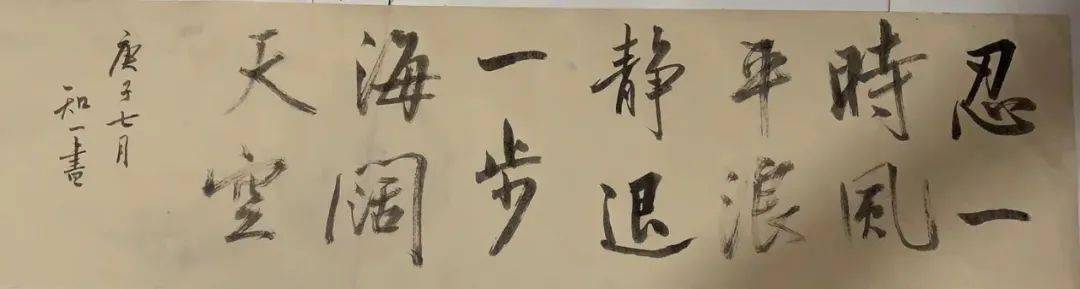 忍一
時風
平浪
静退
一步
海阔
天空
庚子七月
知一書